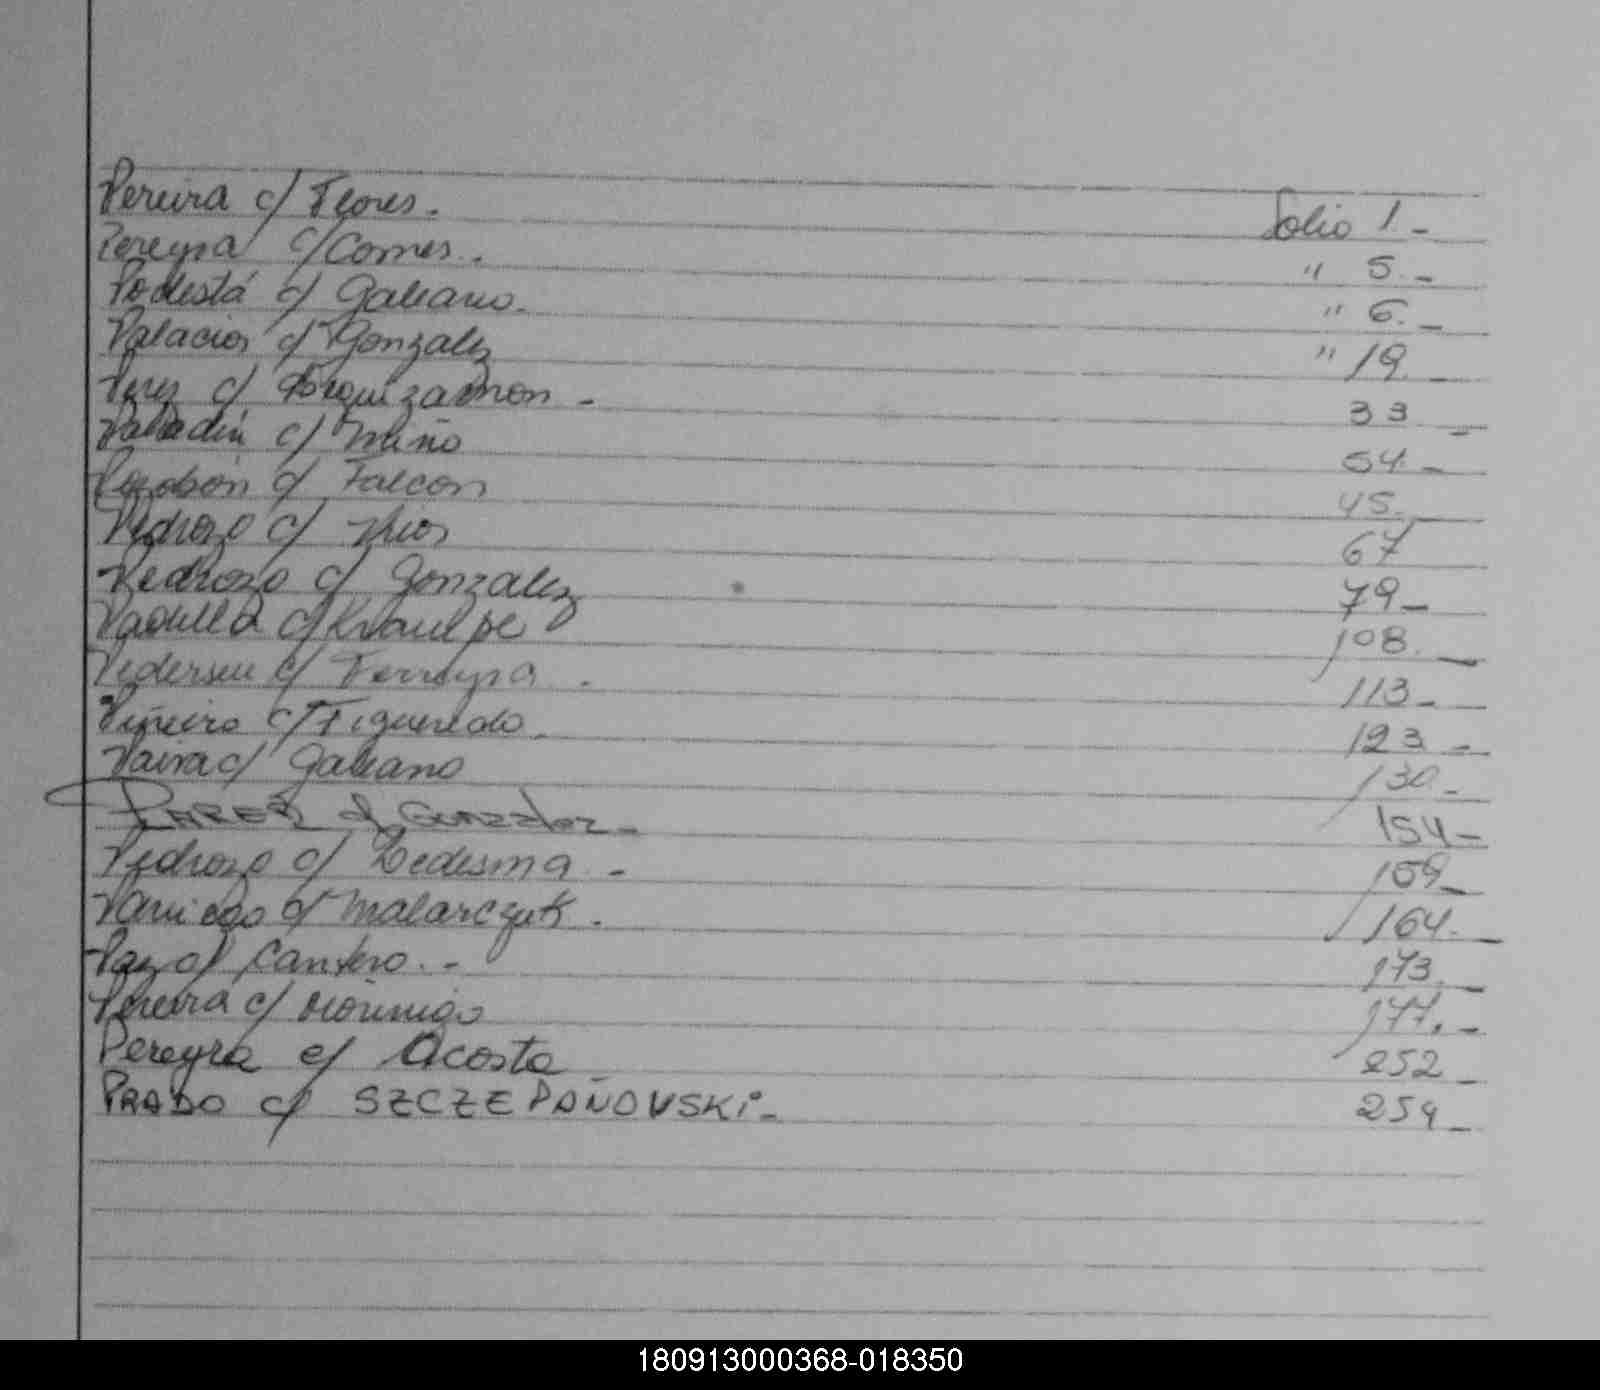 Pereira c/ Flores. Folio 1.-
Pereyra c/ Comes. " 5.-
Podestá c/ Galeano. " 6.-
Palacios c/ Gonzalez " 19.-
Perez c/ 33.-
c/ Miño 54.-
c/ Falcon 45.-
Pedrozo c/ Rios 67
Pedrozo c/ Gonzalez 79-
Padilla c/ 108.-
Pedersen c/ Ferreyra. 113-
Piñeiro c/ Figueredo. 123-
Paira c/ Galeano 130.-
c/ Gonzalez- 154-
Pedrozo c/ Ledesma.- 159-
c/ Malarczuk. 164.-
Paz c/ Cantero.- 173.-
Pereira c/ Morinigo 177.-
Pereyra c/ Acosta 252-
PRADO c/ SZCZEPAÑOVSKi- 254-
180913000368-018350